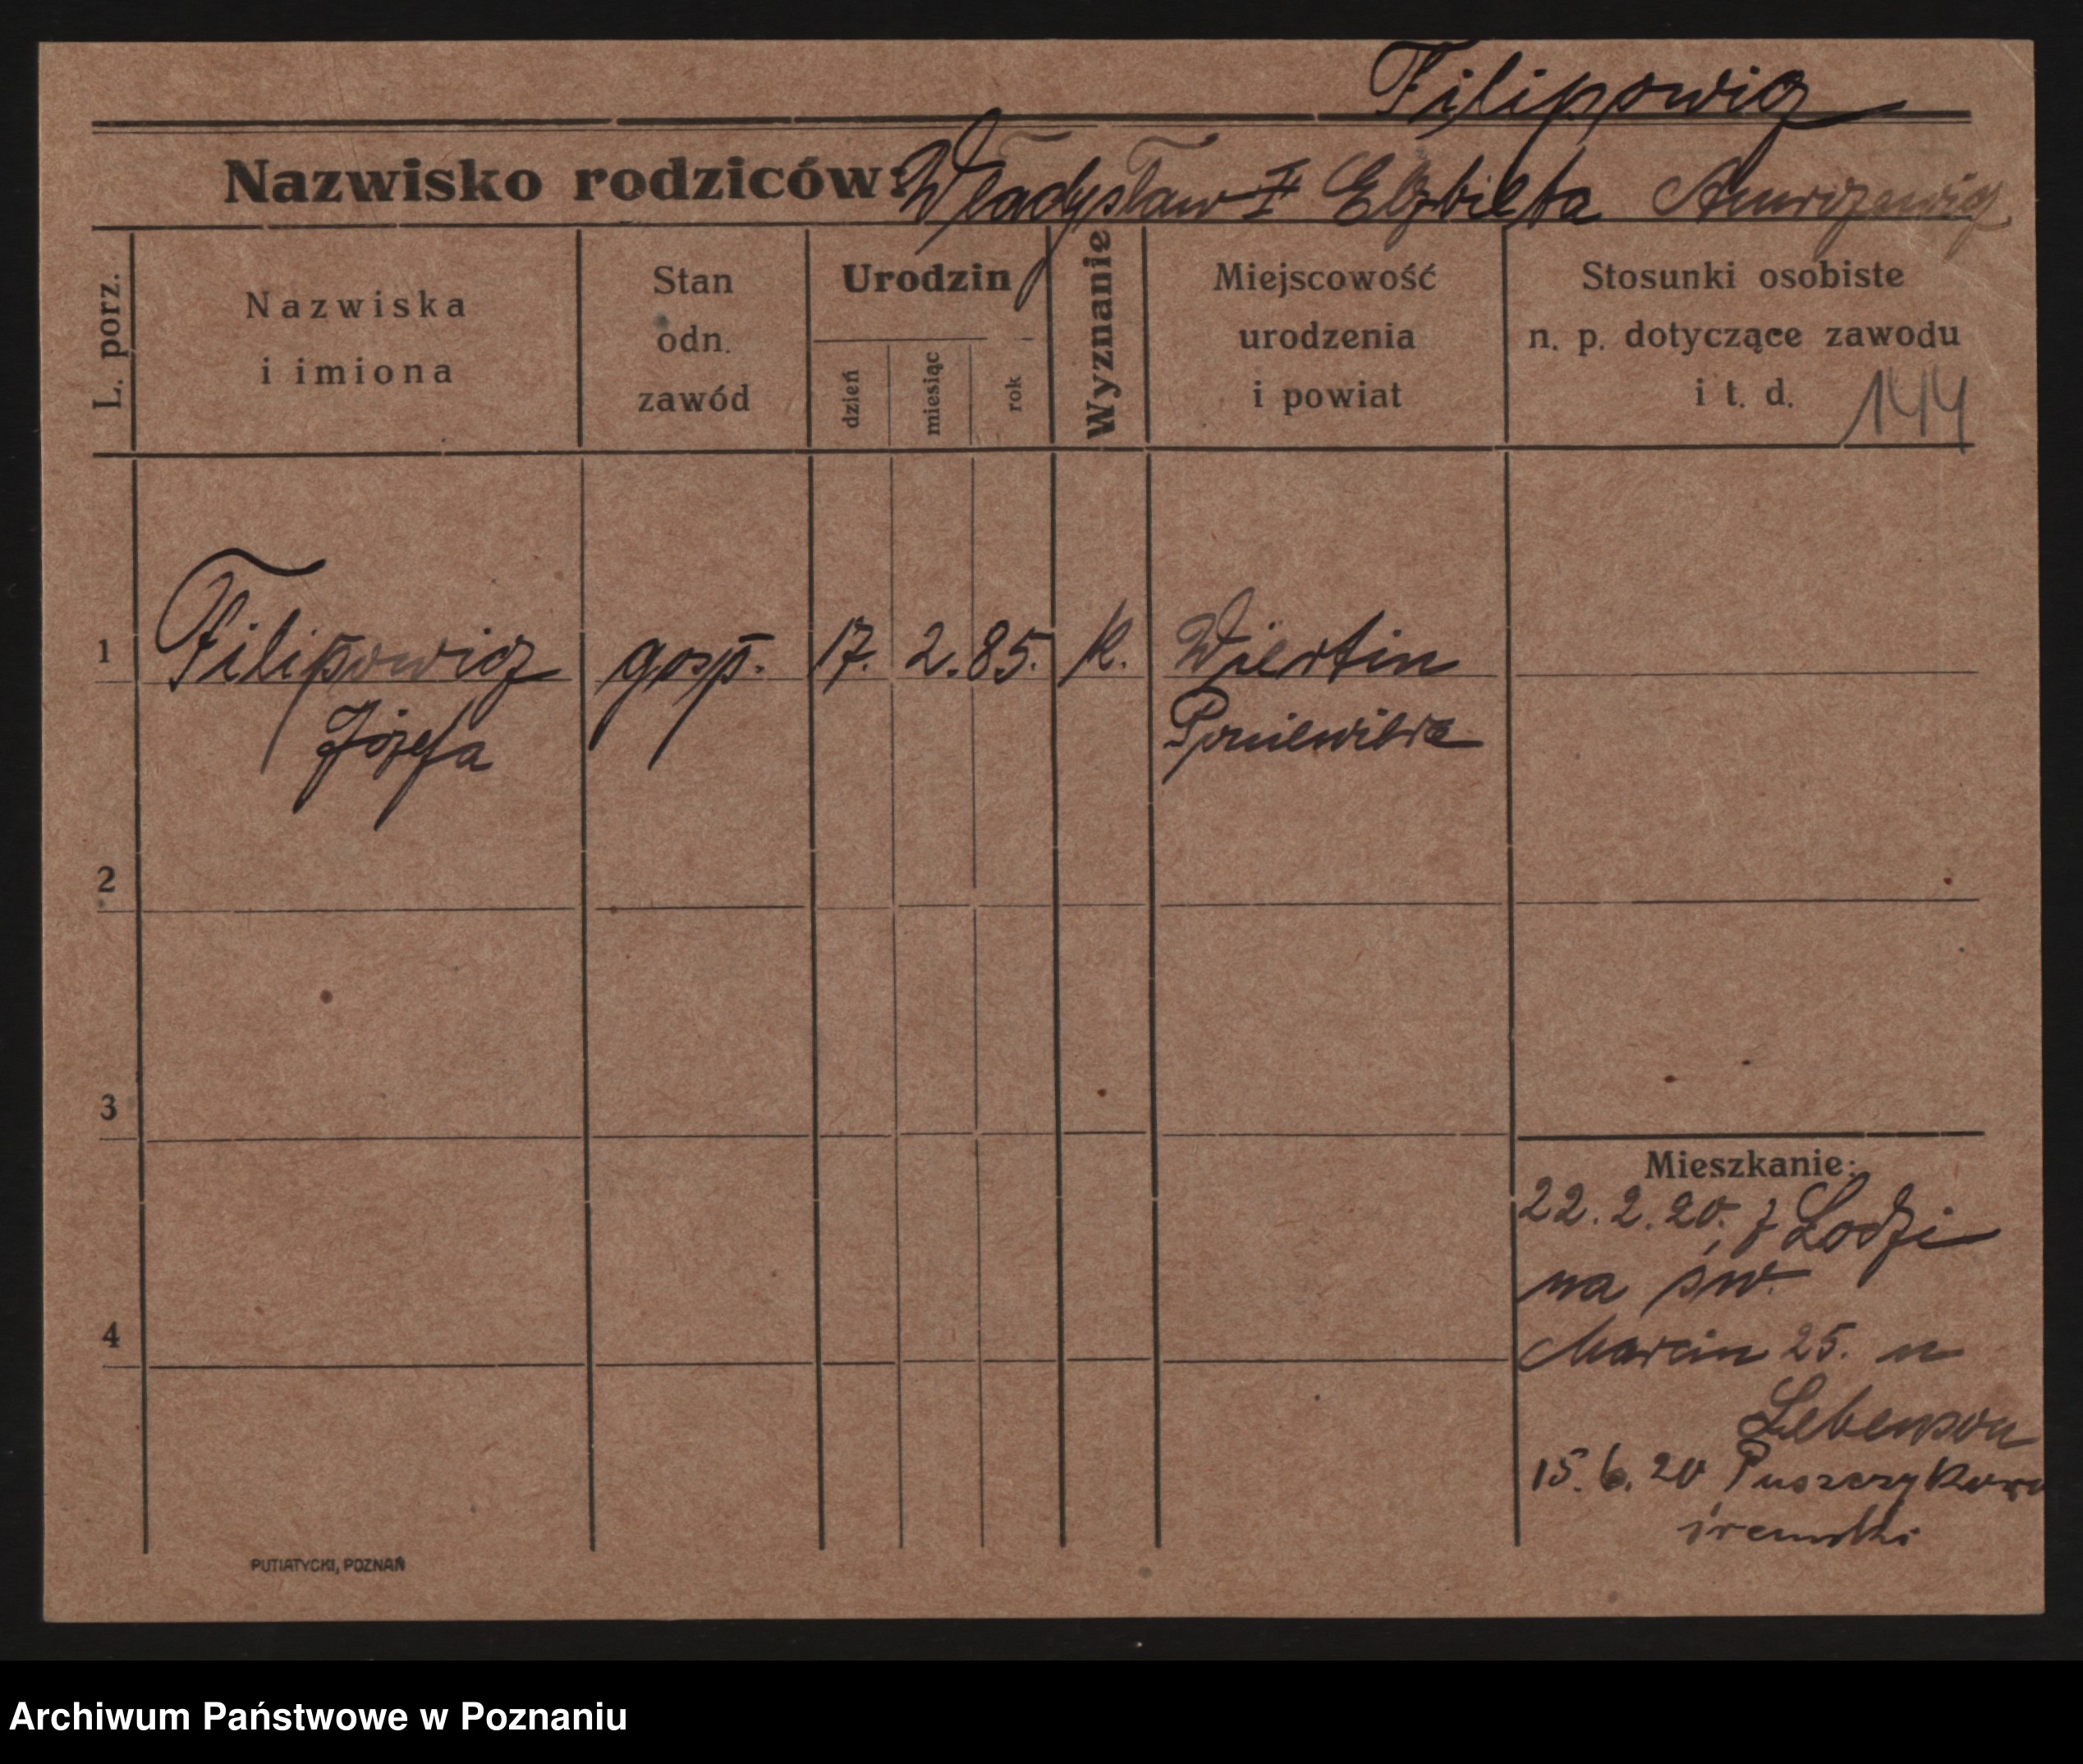 Filipowicz
Nazwisko rodziców: Władysław II Elżbieta
L. porz.
Nazwiska
i imiona
Stan
odn.
zawód
Urodzin
dzień
miesiąc
rok
Wyznanie
Miejscowość
urodzenia
i powiat
Stosunki osobiste
n. p. dotyczące zawodu
i t. d. 144
1 Filipowicz gosp. 17. 2. 85. K. Wiertin
Józefa
2
3
Mieszkanie:
22. 2. 20. z Łodzi
na św.
4
Marcin 25. u
Lebenson
15. 6. 20 Puszczykowo
PUTIATYCKI, POZNAŃ
Archiwum Państwowe w Poznaniu